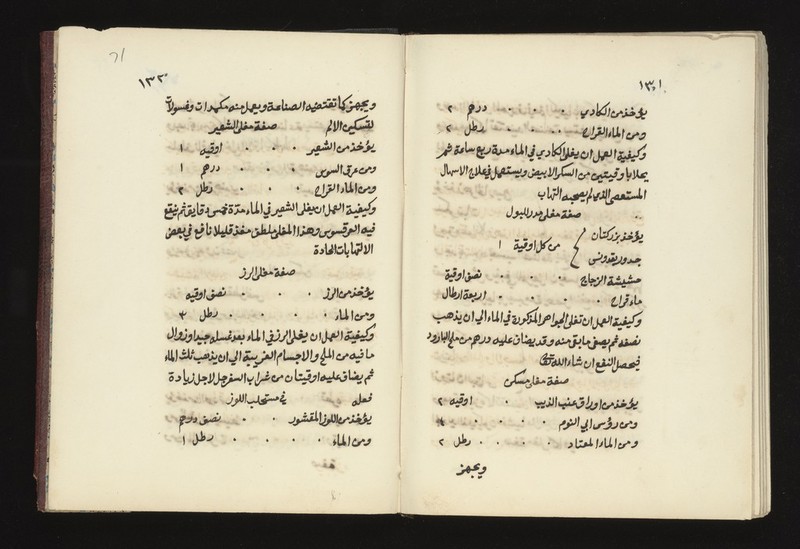 ١٣١
يؤخذ من الكادي . . . . درهم ٢
ومن الماء القراح . . . . رطل ٢
وكيفية العمل ان يغلا الكادي في الماء مدة ربع ساعة ثم
يحلا باوقيتين من السكر الابيض ويستعمل في علاج الاسهال
المستعصي الذي لم يصحبه التهاب
صفة مغلي مدر للبول
يؤخذ بزر كتان
جدور بقدونس } من كل اوقية ١
حشيشة الزجاج . . . . نصف اوقية
ماء قراح . . . . اربعة ارطال
وكيفية العمل ان تغلي الجواهر المذكورة في الماء الي ان يذهب
نصفه ثم يصفي ما بقي منه وقد يضاف عليه درهم من ملح البارود
فيحصل النفع ان شاء الله
صفة مغلي مسكن
يؤخذ من اوراق عنب الديب . اوقيه ٢
ومن رؤس ابي النوم . . . . ٣
ومن الماء المعتاد . . . . رطل ٢
ويجهز
٧١
١٣٢
ويجهز كما تقتضيه الصناعة ويعمل منه مكمدات وغسولات
لتسكين الالم صفة مغلي الشعير
يؤخذ من الشعير . . . اوقيه ١
ومن عرق السوس . . . درهم ١
ومن الماء القراح . . . رطل ٢
وكيفية العمل ان يغلي الشعير في الماء مدة خمس دقايق ثم ينقع
فيه العرقسوس وهذا المغلي ملطف مغذ قليلا نافع في بعض
الالتهابات الحادة
صفة مغلي الرز
يؤخذ من الرز . . . . نصف اوقيه
ومن الماء . . . . رطل ٣
وكيفية العمل ان يغلي الرز في الماء بعد غسله جيدا وزوال
ما فيه من الملح والاجسام الغريبية الي ان يذهب ثلث الماء
ثم يضاف عليه اوقيتان من شراب السفرجل لاجل زيادة
فعله في مستحلب اللوز
يؤخذ من اللوز المقشور . . نصف درهم
ومن الماء . . . . رطل ١
صفة